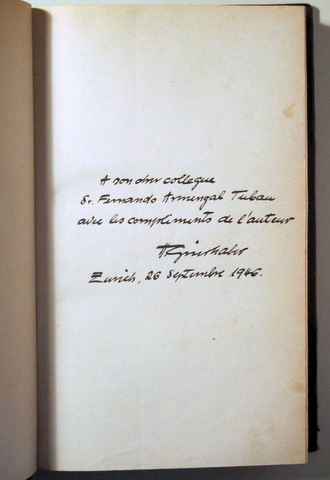 A son cher collegue
Sr. Fernando Armengal Tubau
avec les compliments de l'auteur
Zurich, 26 Septembre 1946.